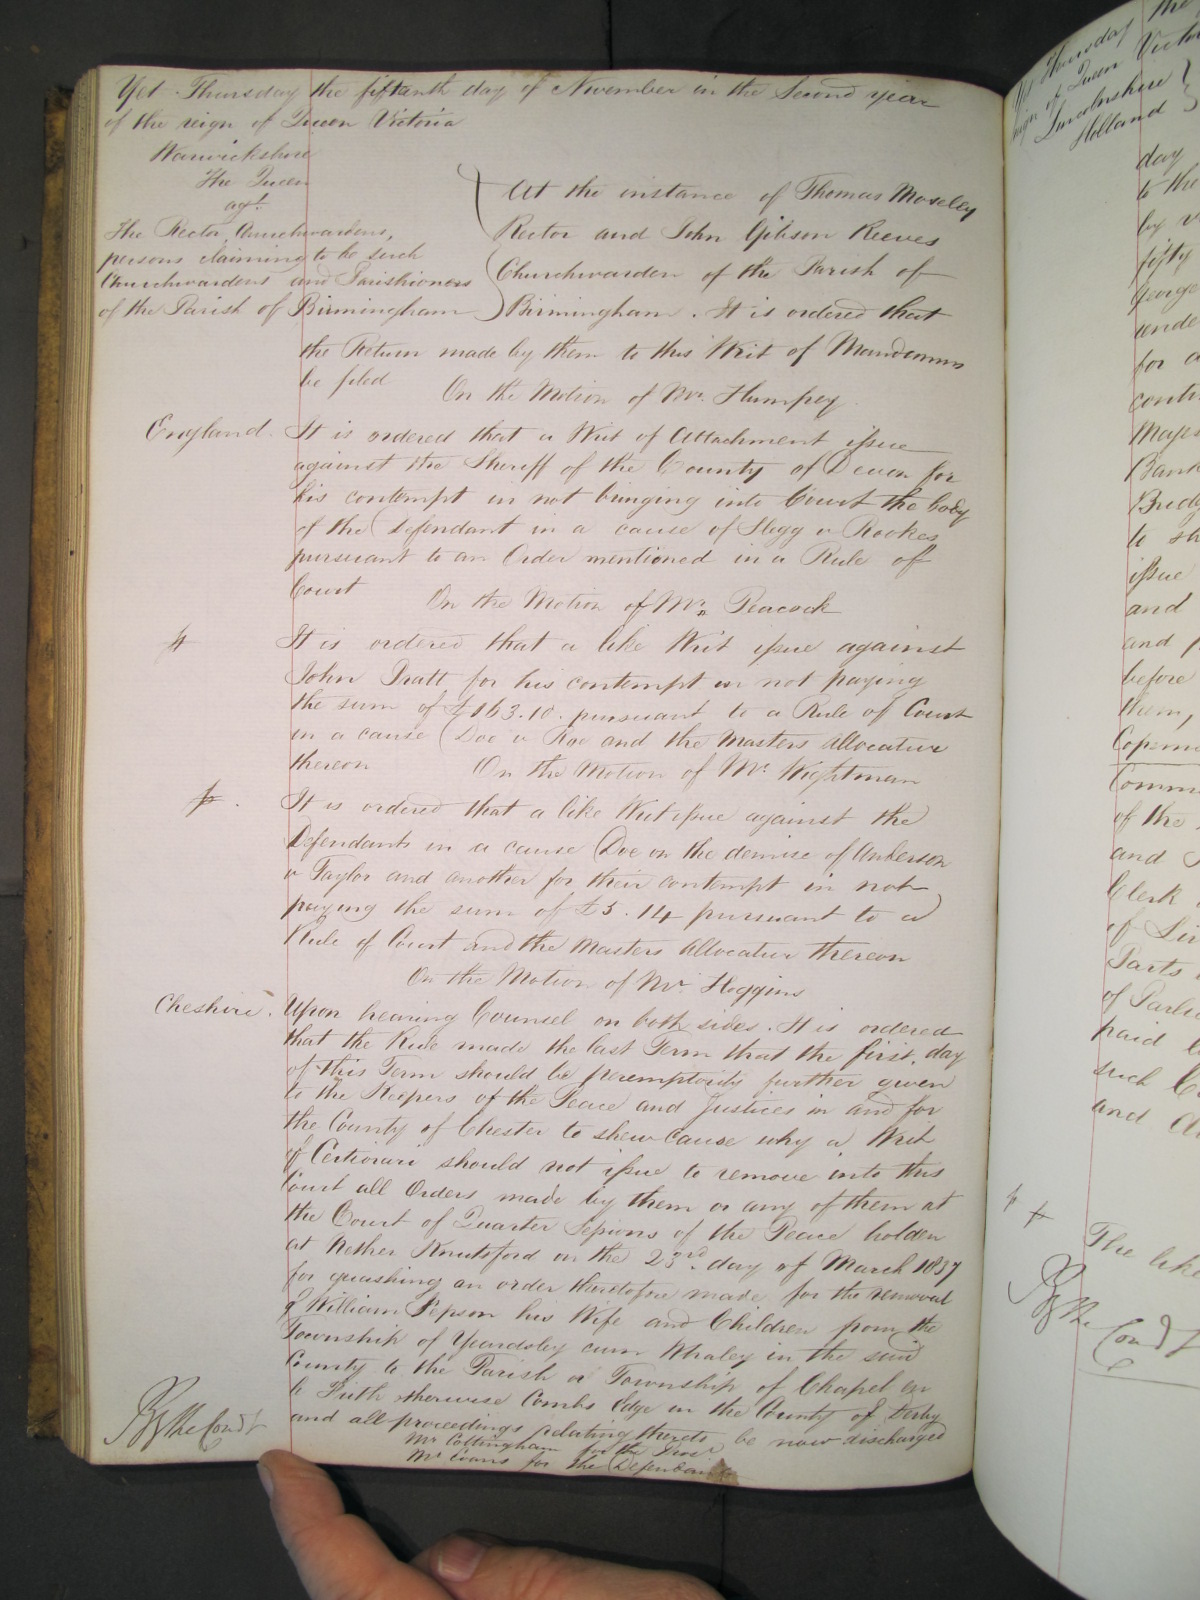 Yet Thursday the fifteenth day of November in the Second year
of the reign of Queen Victoria
Warwickshire
The Queen
agt.
The Rector, Churchwardens,
persons claiming to be such
Churchwardens and Parishioners
of the Parish of Birmingham
At the instance of Thomas Moseley
Rector and John Gibson Reeves
Churchwarden of the Parish of
Birmingham. It is ordered that
the Return made by them to this Writ of Mandamus
be filed On the Motion of Mr. Humfrey
England. It is ordered that a Writ of Attachment issue
against the Sheriff of the County of Devon for
his contempt in not bringing into Court the body
of the Defendant in a cause of Hegg v Rookes
pursuant to an Order mentioned in a Rule of
Court On the Motion of Mr. Peacock
It is ordered that a like Writ issue against
John Pratt for his contempt in not paying
the sum of £163.10. pursuant to a Rule of Court
in a cause Doe v Roe and the Masters Allocatur
thereon On the Motion of Mr. Wightman
It is ordered that a like Writ issue against the
Defendants in a cause Doe on the demise of Anderson
v Taylor and another for their contempt in not
paying the sum of £5.14 pursuant to a
Rule of Court and the Masters Allocatur thereon
On the Motion of Mr. Hoggins
Cheshire. Upon hearing Counsel on both sides. It is ordered
that the Rule made the last Term that the first day
of this Term should be peremptorily further given
to the Keepers of the Peace and Justices in and for
the County of Chester to shew cause why a Writ
of Certiorari should not issue to remove into this
Court all Orders made by them or any of them at
the Court of Quarter Sessions of the Peace holden
at Nether Knutsford on the 23rd. day of March 1837
for quashing an order theretofore made for the removal
of William Jepson his Wife and Children from the
Township of Yeardsley cum Whaley in the said
County to the Parish or Township of Chapel en
le Frith otherwise Combs Edge in the County of Derby
and all proceedings relating thereto be now discharged
Mr Cottingham for the Prosr.
Mr Evans for the Defendants
By the Court
Yet Thursday the
reign of Queen Victo
Lincolnshire
Holland
day
to the
by v
fifty
George
unde
for a
conti
Majes
Bank
Bridg
to sh
issue
and
and p
before
them,
Comm
of the
and
Clerk
of Lin
Parts
of Parlia
paid
such C
and
The like
By the Court